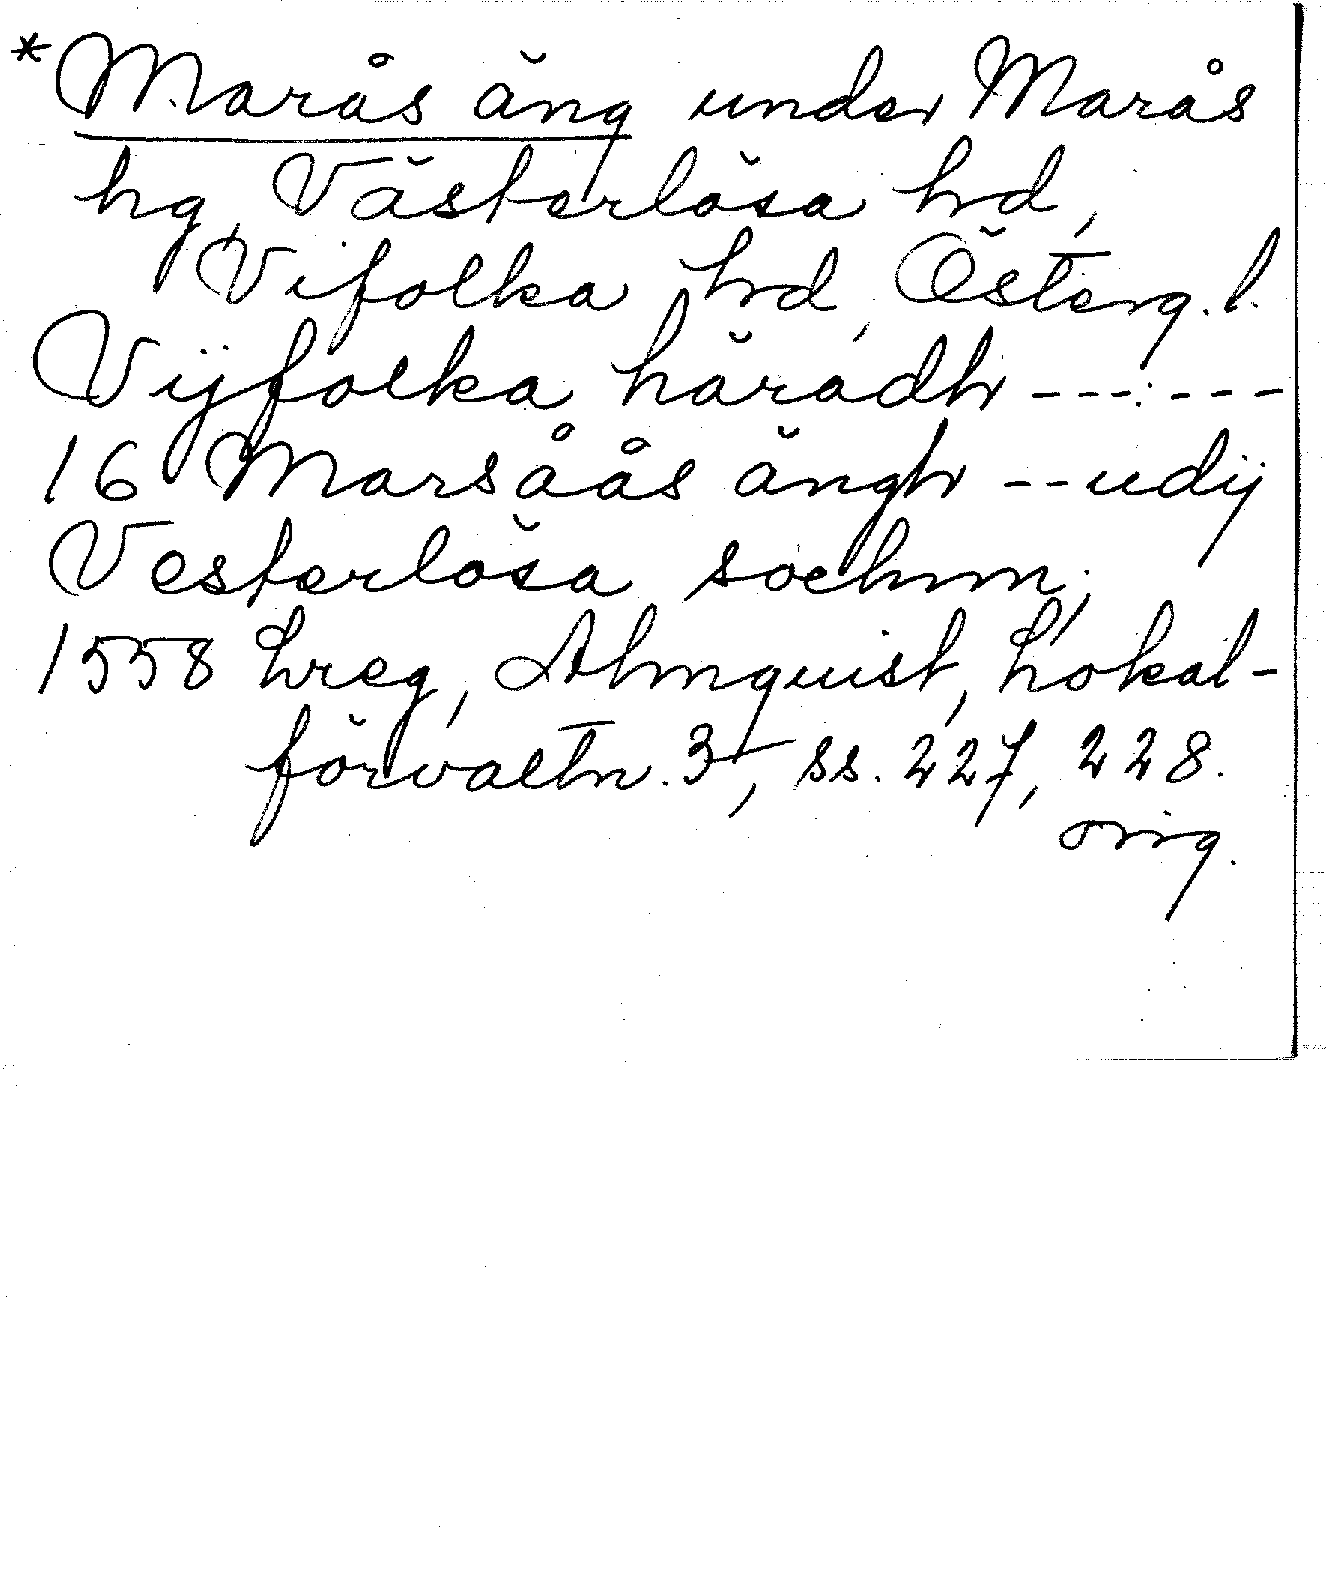 *Marås äng under Marås
hg, Västerlösa hd,
Vifolka hd, Österg.l.
Vijfolka häradh ---:---
16 Marsåås ängh -- udij
Vesterlösa sochnn;
1558 hreg, Almquist, Lokal-
förvaltn. 3, ss. 227, 228.
orig.